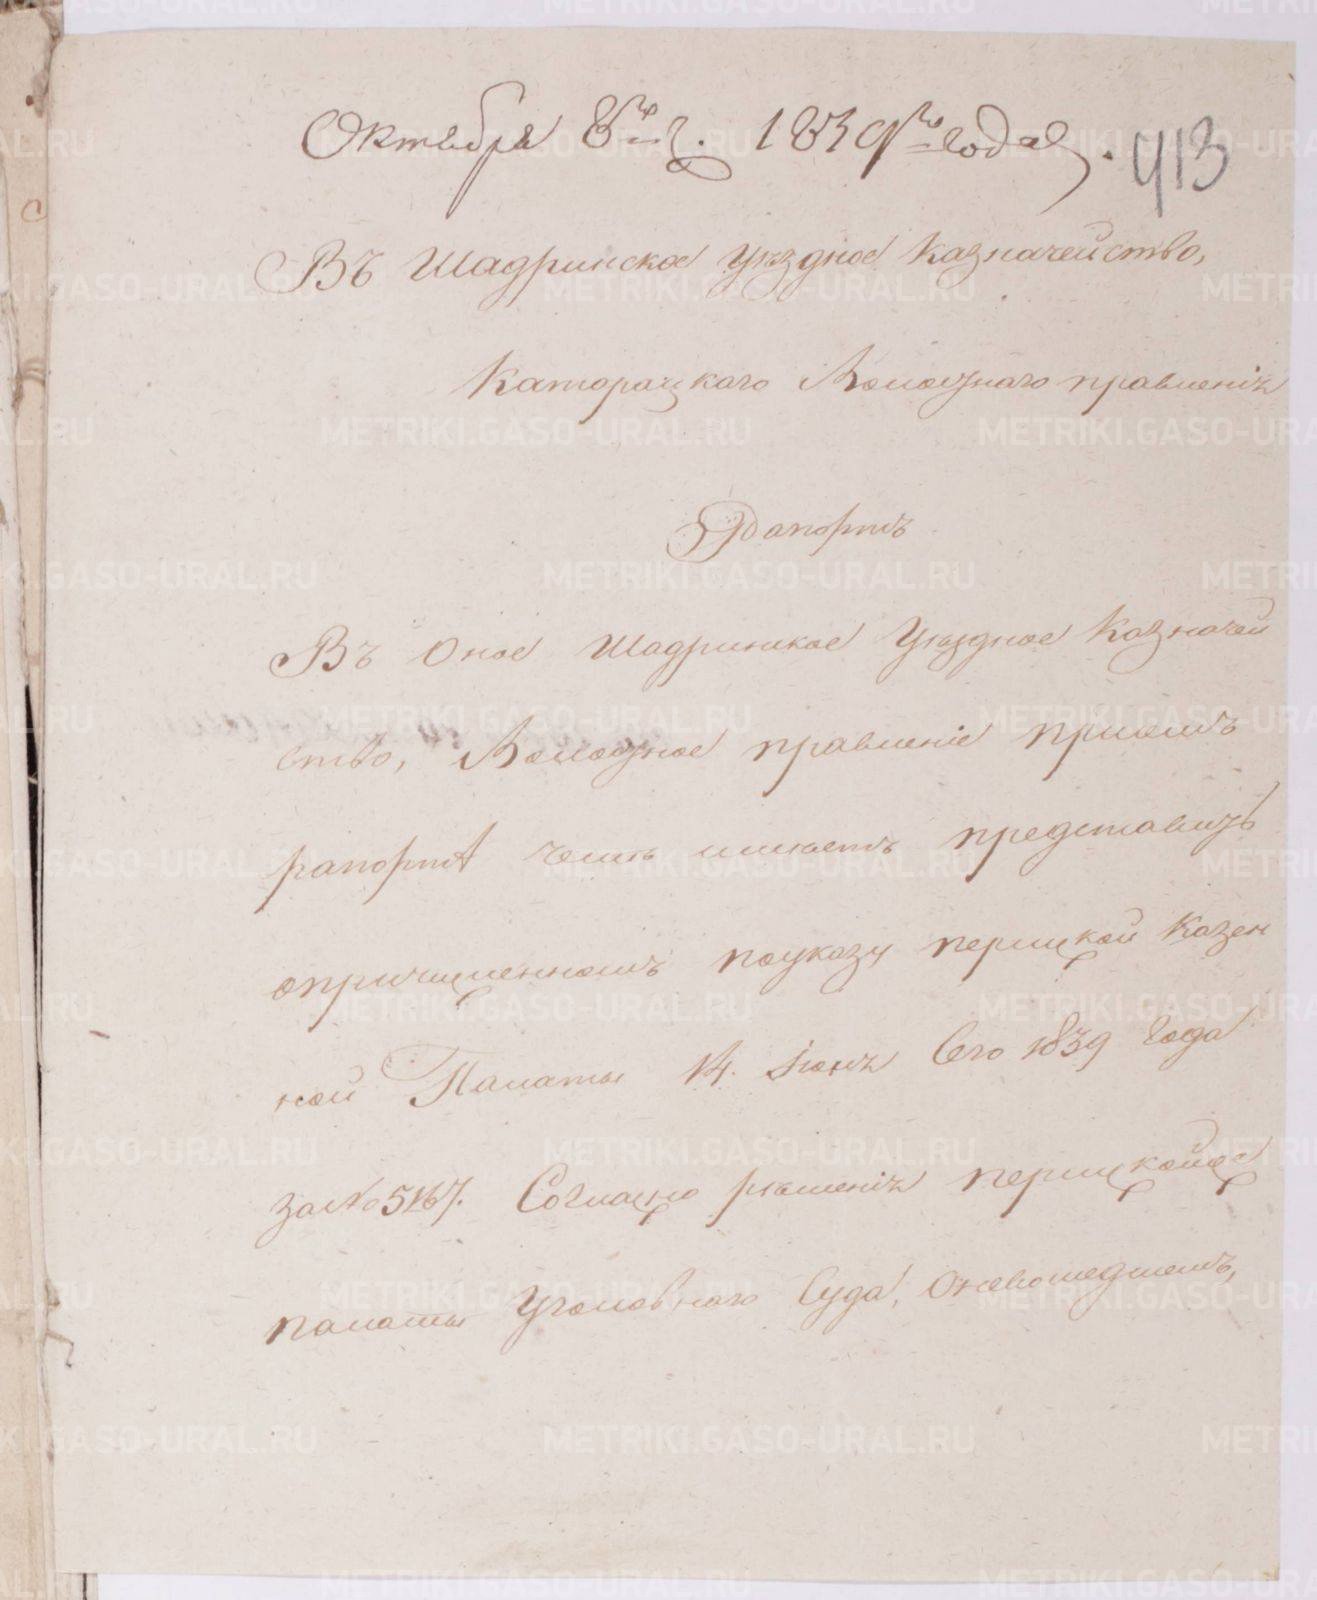 Октября 8го ч. 1839го года. 413
Въ Шадринское Уѣздное Казначейство,
Каторацкого Волостнаго правленія
Рапортъ
Въ Оное Шадринское Уѣздное Казначей
ство, Волостное правленіе присемъ
рапортѣ честь имѣетъ представить
опричисленномъ поуказу пермской Казен
ной Палаты 14. Іюня Сего 1839 года
за No 5167. Согласно рѣшенія пермской
палаты Уголовнаго Суда,
METRIKI.GASO-URAL.RU